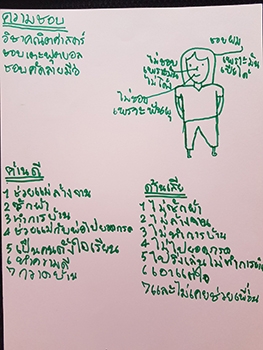 ความชอบ
วิชาคณิตศาสตร์
ชอบเตะฟุตบอล
ชอบคัดลายมือ
ชอบผม
เพราะมัน
ไม่ชอบ
เพราะมัน
ไม่ชอบ
ด้านดี
1 ช่วยแม่ล้างจาน
2 ซักผ้า
3 ทำการบ้าน
4 ช่วยแม่กับพ่อไปยอดกรด
5 เป็นคนตั้งใจเรียน
6 ทำความดี
7 กวาดบ้าน
ด้านเสีย
1 ไม่ซักผ้า
2 ไม่ล้างจาน
3 ไม่ทำการบ้าน
4 ไม่ไปยอดกรด
5 ไปวิ่งเล่นไม่ทำการบ้าน
6 เอาแต่ใจ
7 และไม่เคยช่วยเพื่อน